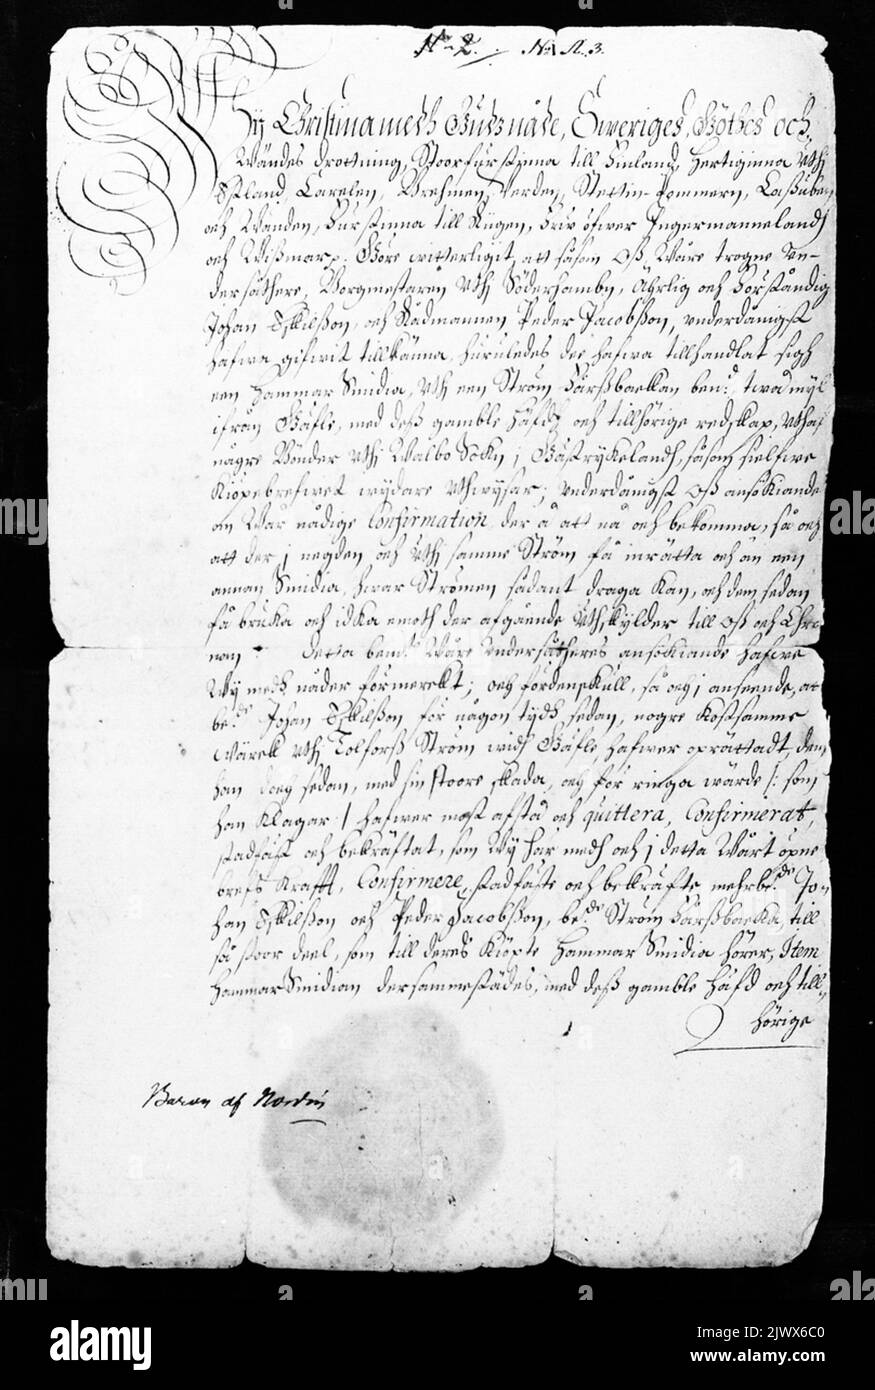 No 2. No A. 3.
Wij Christina medh Gudz nåde, Sweriges, Göthes och
Wändes drottning, Stoorfurstinna till Finland, Hertiginna vthi
Estland, Carelen, Brehmen, Verden, Stettin-Pommern, Cassuben
och Wänden, Furstinna till Rügen, Frw öfwer Ingermannelandh
och Wißmar. Göre witterligit, att såsom Oß Wåre trogne Vn-
dersåthere, Borgmestaren vthi Söderhambn, Ährlig och Förståndig
Johan Eskilßon, och Rådmannen Peder Jacobßon, vnderdånigst
hafwa gifwit tillkänna, huruledes dee hafwa tillhandlat sigh
een Hammar Smidia, vthi een Ström Färßbäckan ben:d twå myhl
ifrån Gäfle, med deß gamble häfd och tillhörige redskap, vthaf
någre Bönder vthi Walbo Sokn j Gästrykelandh, såsom sielfwe
Kiöpebrefwet wydare vthwysar; vnderdånigst Oß ansökiande
om Wår nådige Confirmation der å att nå och bekomma, så och
att der j negden och vthi samme Ström få inrätta och än een
annan Smidia, hwar Strömen sådant draga kan, och dem sedan
få bruka och idka emoth der afgående vthskylder till Oß och Chro-
nan. Detta bem:te Wåre vndersåtheres ansökiande hafwe
Wy medh nåder förmerckt; och fördenskull, så och j anseende, at
be:de Johan Eskilßon för någon tydh sedan, nogre kostsamme
wärck vthi Tolforß Ström widh Gäfle, hafwer oprättadt, dem
han doch sedan, med sin stoore skada, och för ringa wärde /: som
han klagar :/ hafwer måst afstå och quittera, Confirmerat,
stadfäst och bekräftat, som Wy här medh och j detta Wårt öpne
brefs krafft, Confirmere, stadfäste och bekräfte mehrbe:de Jo-
han Eskilßon och Peder Jacobßon, be:de Ström Färßbäcka, till
så stoor deel, som till deres kiöpte Hammar Smidia hörer, Item
Hammar Smidian dersammestädes, med deß gamble häfd och till-
hörige
Baron af Nordin
alamy
a
Image ID: 2JWX6C0
www.alamy.com